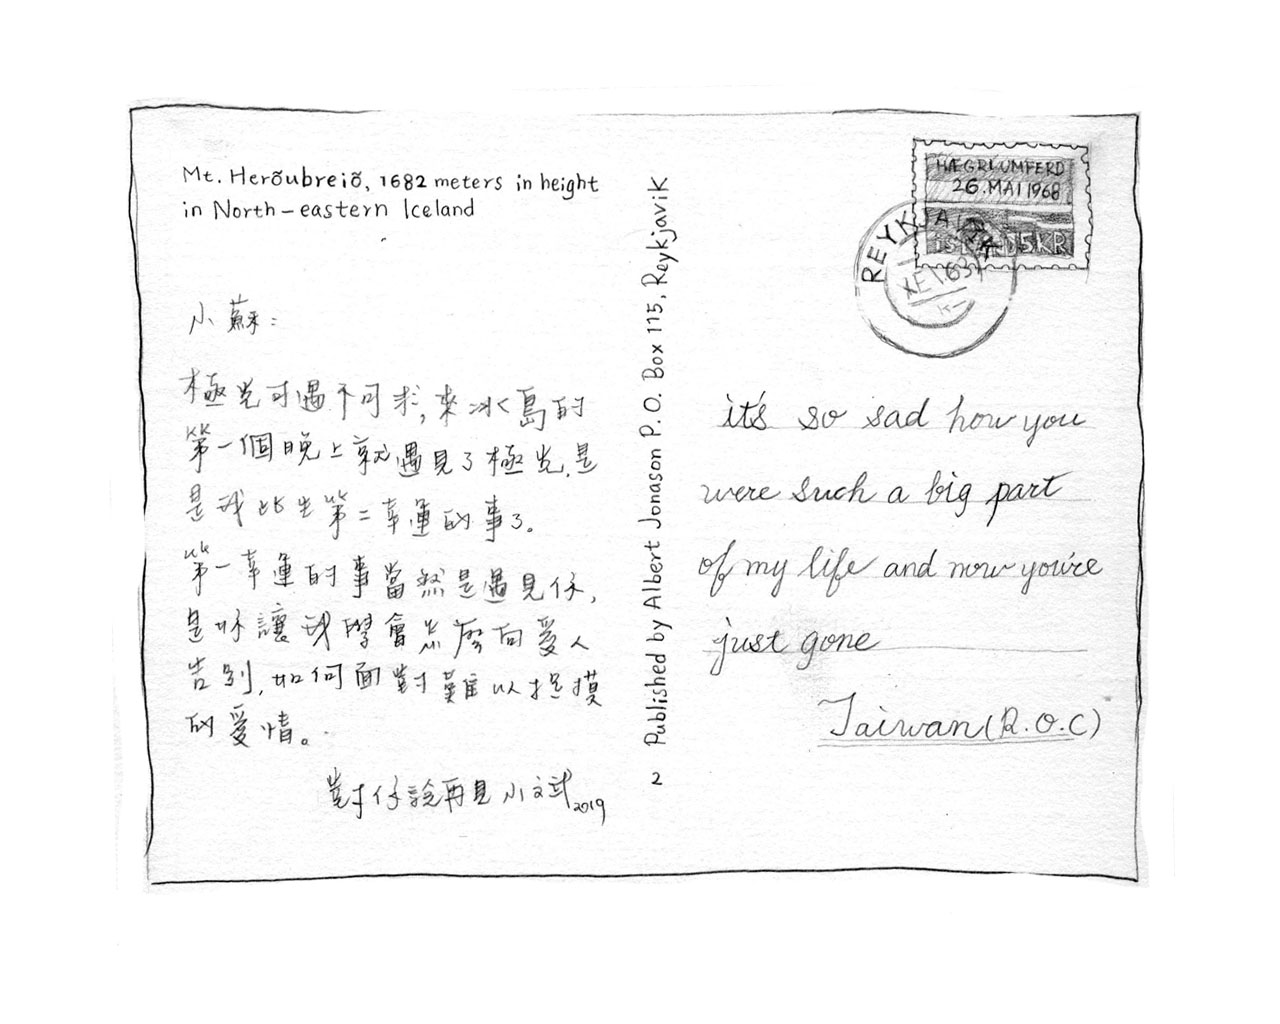 Mt. Herõubreiõ, 1682 meters in height
in North-eastern Iceland
小蘇:
極光可遇不可求,來冰島的
第一個晚上就遇見了極光,是
是我此生第二幸運的事了。
第一幸運的事當然是遇見你,
是你讓我學會怎麼向愛人
告別,如何面對難以捉摸
的愛情。
對你說再見小文斌2019
Published by Albert Jonason P.O. Box 115, Reykjavik
2
HÆGRI UMFERD
26.MAI 1968
ISLAND 5KR
REYKJAVIK
it's so sad how you
were such a big part
of my life and now you're
just gone
Taiwan(R.O.C)